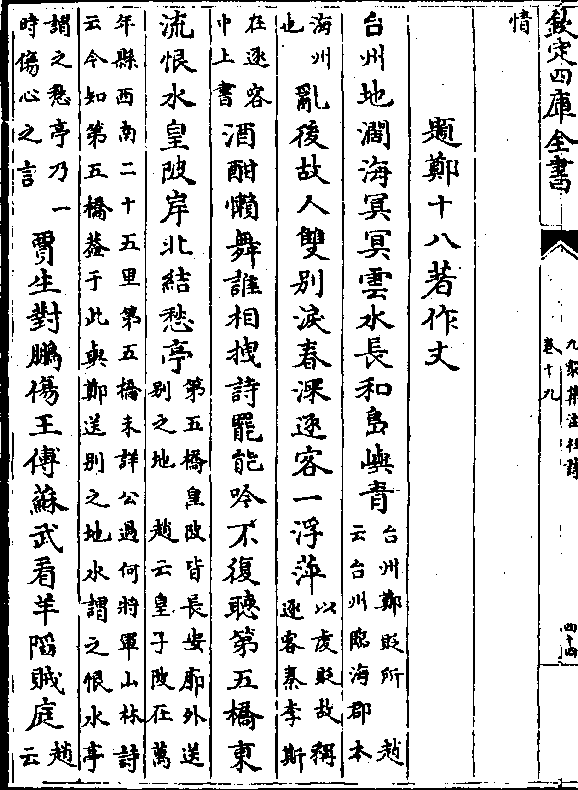 欽定四庫全書
九家集注杜詩
卷十九
四十四
情
題鄭十八著作丈
台州地濶海冥冥雲水長和島嶼青台州鄭貶所趙云台州臨海郡本
海州也亂後故人雙別淚春深逐客一浮萍以虔貶故稱逐客秦李斯
在逐客中上書酒酣懶舞誰相拽詩罷能吟不復聽第五橋東
流恨水皇陂岸北結愁亭第五橋皇陂皆長安郭外送別之地趙云皇子陂在萬
年縣西南二十五里第五橋未詳公過何將軍山林詩云今知第五橋葢于此與鄭送別之地水謂之恨水亭
謂之愁亭乃一時傷心之言賈生對鵩傷王傅蘇武看羊陷賊庭趙云